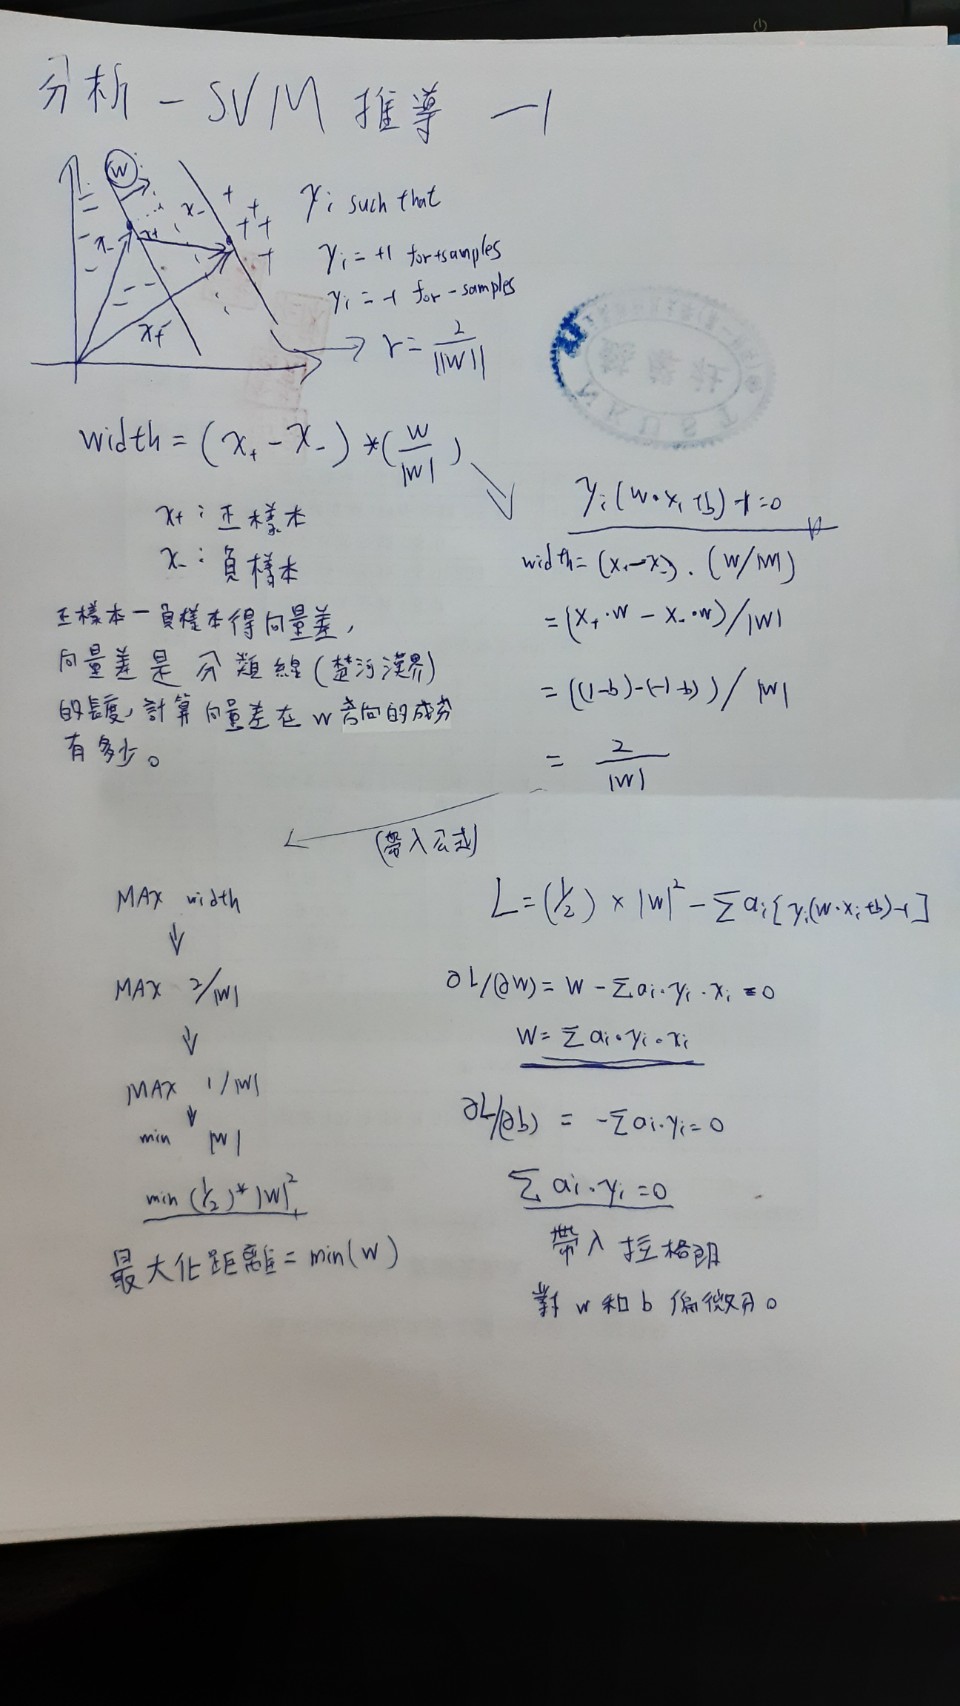 分析 - SVM 推導 -1
W
x-
x+
x-
x+
yi such that
yi = +1 for +samples
yi = -1 for -samples
r = 2/||W||
width = (x+ - x-) * (w/|w|)
x+ : 正樣本
x- : 負樣本
正樣本-負樣本得向量差,
向量差是分類線(楚河漢界)
的長度,計算向量差在w方向的成分
有多少。
yi(w·xi+b)-1=0
width = (x+-x-)·(w/|w|)
= (x+·w - x-·w)/|w|
= ((1-b)-(-1-b))/|w|
= 2/|w|
(帶入公式)
MAX width
↓
MAX 2/|w|
↓
MAX 1/|w|
↓
min |w|
min (1/2)*|w|²
最大化距離 = min(w)
L = (1/2) × |w|² - Σai[yi(w·xi+b)-1]
∂L/(∂w) = w - Σai·yi·xi = 0
w = Σai·yi·xi
∂L/(∂b) = -Σai·yi = 0
Σai·yi = 0
帶入拉格朗
對w和b偏微分。